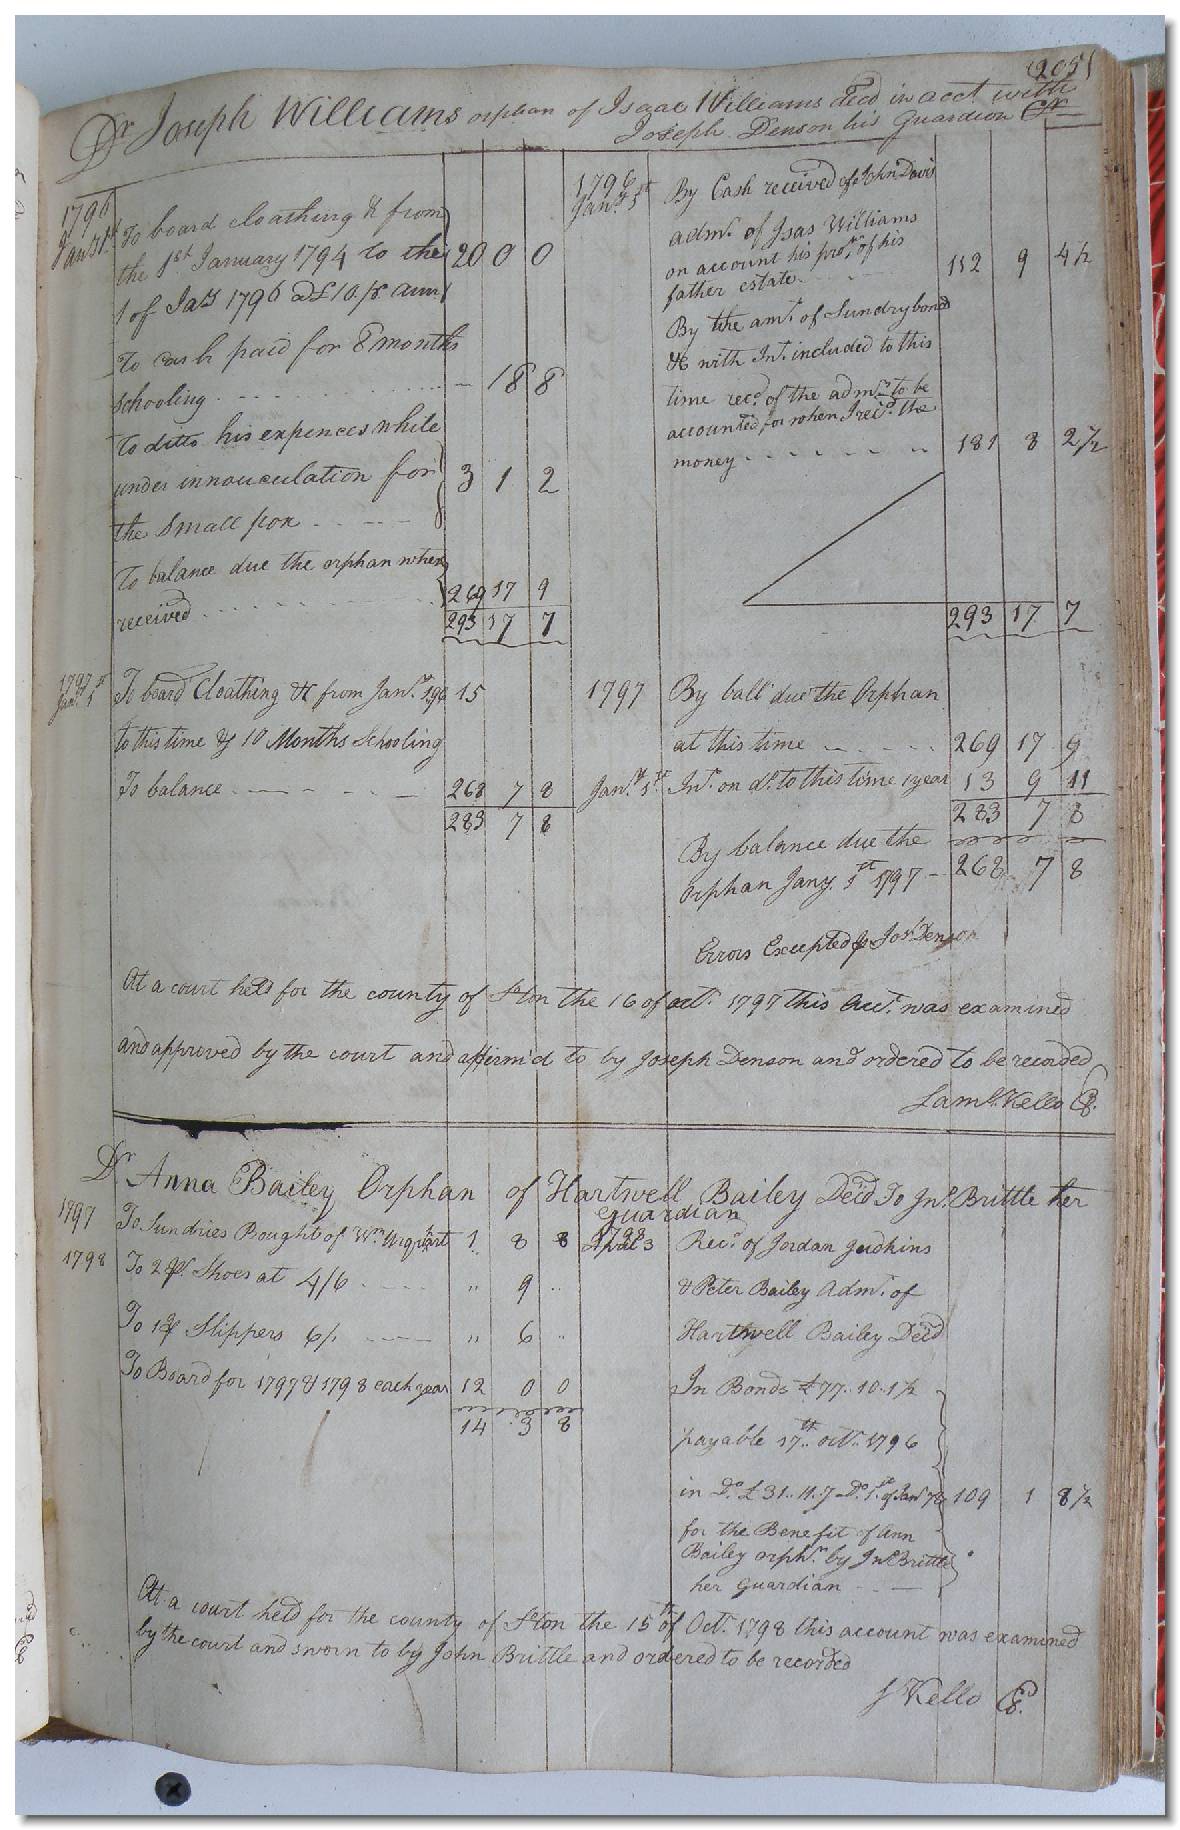 205
Dr Joseph Williams orphan of Isaac Williams decd in acct with
Joseph Denson his Guardian Cr
1796
Jany 1st
To board cloathing & from
the 1st January 1794 to the 20 0 0
1 of Jany 1796 @ £10 pr ann
To cash paid for 8 months
schooling - 18 8
To ditto his expences while
under innouculation for 3 1 2
the Small pox
To balance due the orphan when
received 269 17 9
293 17 7
1796
Jany 1st
By Cash received of John Davis
admr. of Isas Williams
on account his pron. of his 112 9 4½
father estate
By the amt. of Sundry bonds
&c with Int. included to this
time recd. of the admr. to be
accounted for when I recd. the
money 181 8 2½
293 17 7
1797
Jany 1st
To board Cloathing &c from Jany. 1st 96 15
to this time & 10 Months Schooling
To balance 268 7 8
283 7 8
1797 By ball due the Orphan
at this time 269 17 9
Jany. 1st Int. on do. to this time 1 year 13 9 11
283 7 8
By balance due the
orphan Jany. 1st 1797 - 268 7 8
Errors Excepted pr Jos. Denson
At a court held for the county of Ston the 16 of oct. 1797 this Acct. was examined
and approved by the court and affirm'd to by Joseph Denson and ordered to be recorded
Saml. Kello C.
Dr Anna Bailey Orphan of Hartwell Bailey Decd To Jno. Brittle her
guardian
1797 To Sundries Bought of Wm. Urquhart 1 8 8
1798 To 2 pr. Shoes at 4/6 " 9 "
To 1 pr Slippers 6/. " 6 "
To Board for 1797 & 1798 each year 12 0 0
14 3 8
1798
3 Recd. of Jordan Judkins
& Peter Bailey Admr. of
Hartwell Bailey Decd
In Bonds £77..10..1½
payable 17th. oct. 1796
in Do. £31..11..7 Do. 1st. of Jany 109 1 8½
for the Benefit of Ann
Bailey orphn. by Jno. Brittle
her guardian
At a court held for the county of Ston the 15th of Oct. 1798 this account was examined
by the court and sworn to by John Brittle and ordered to be recorded
S Kello C.